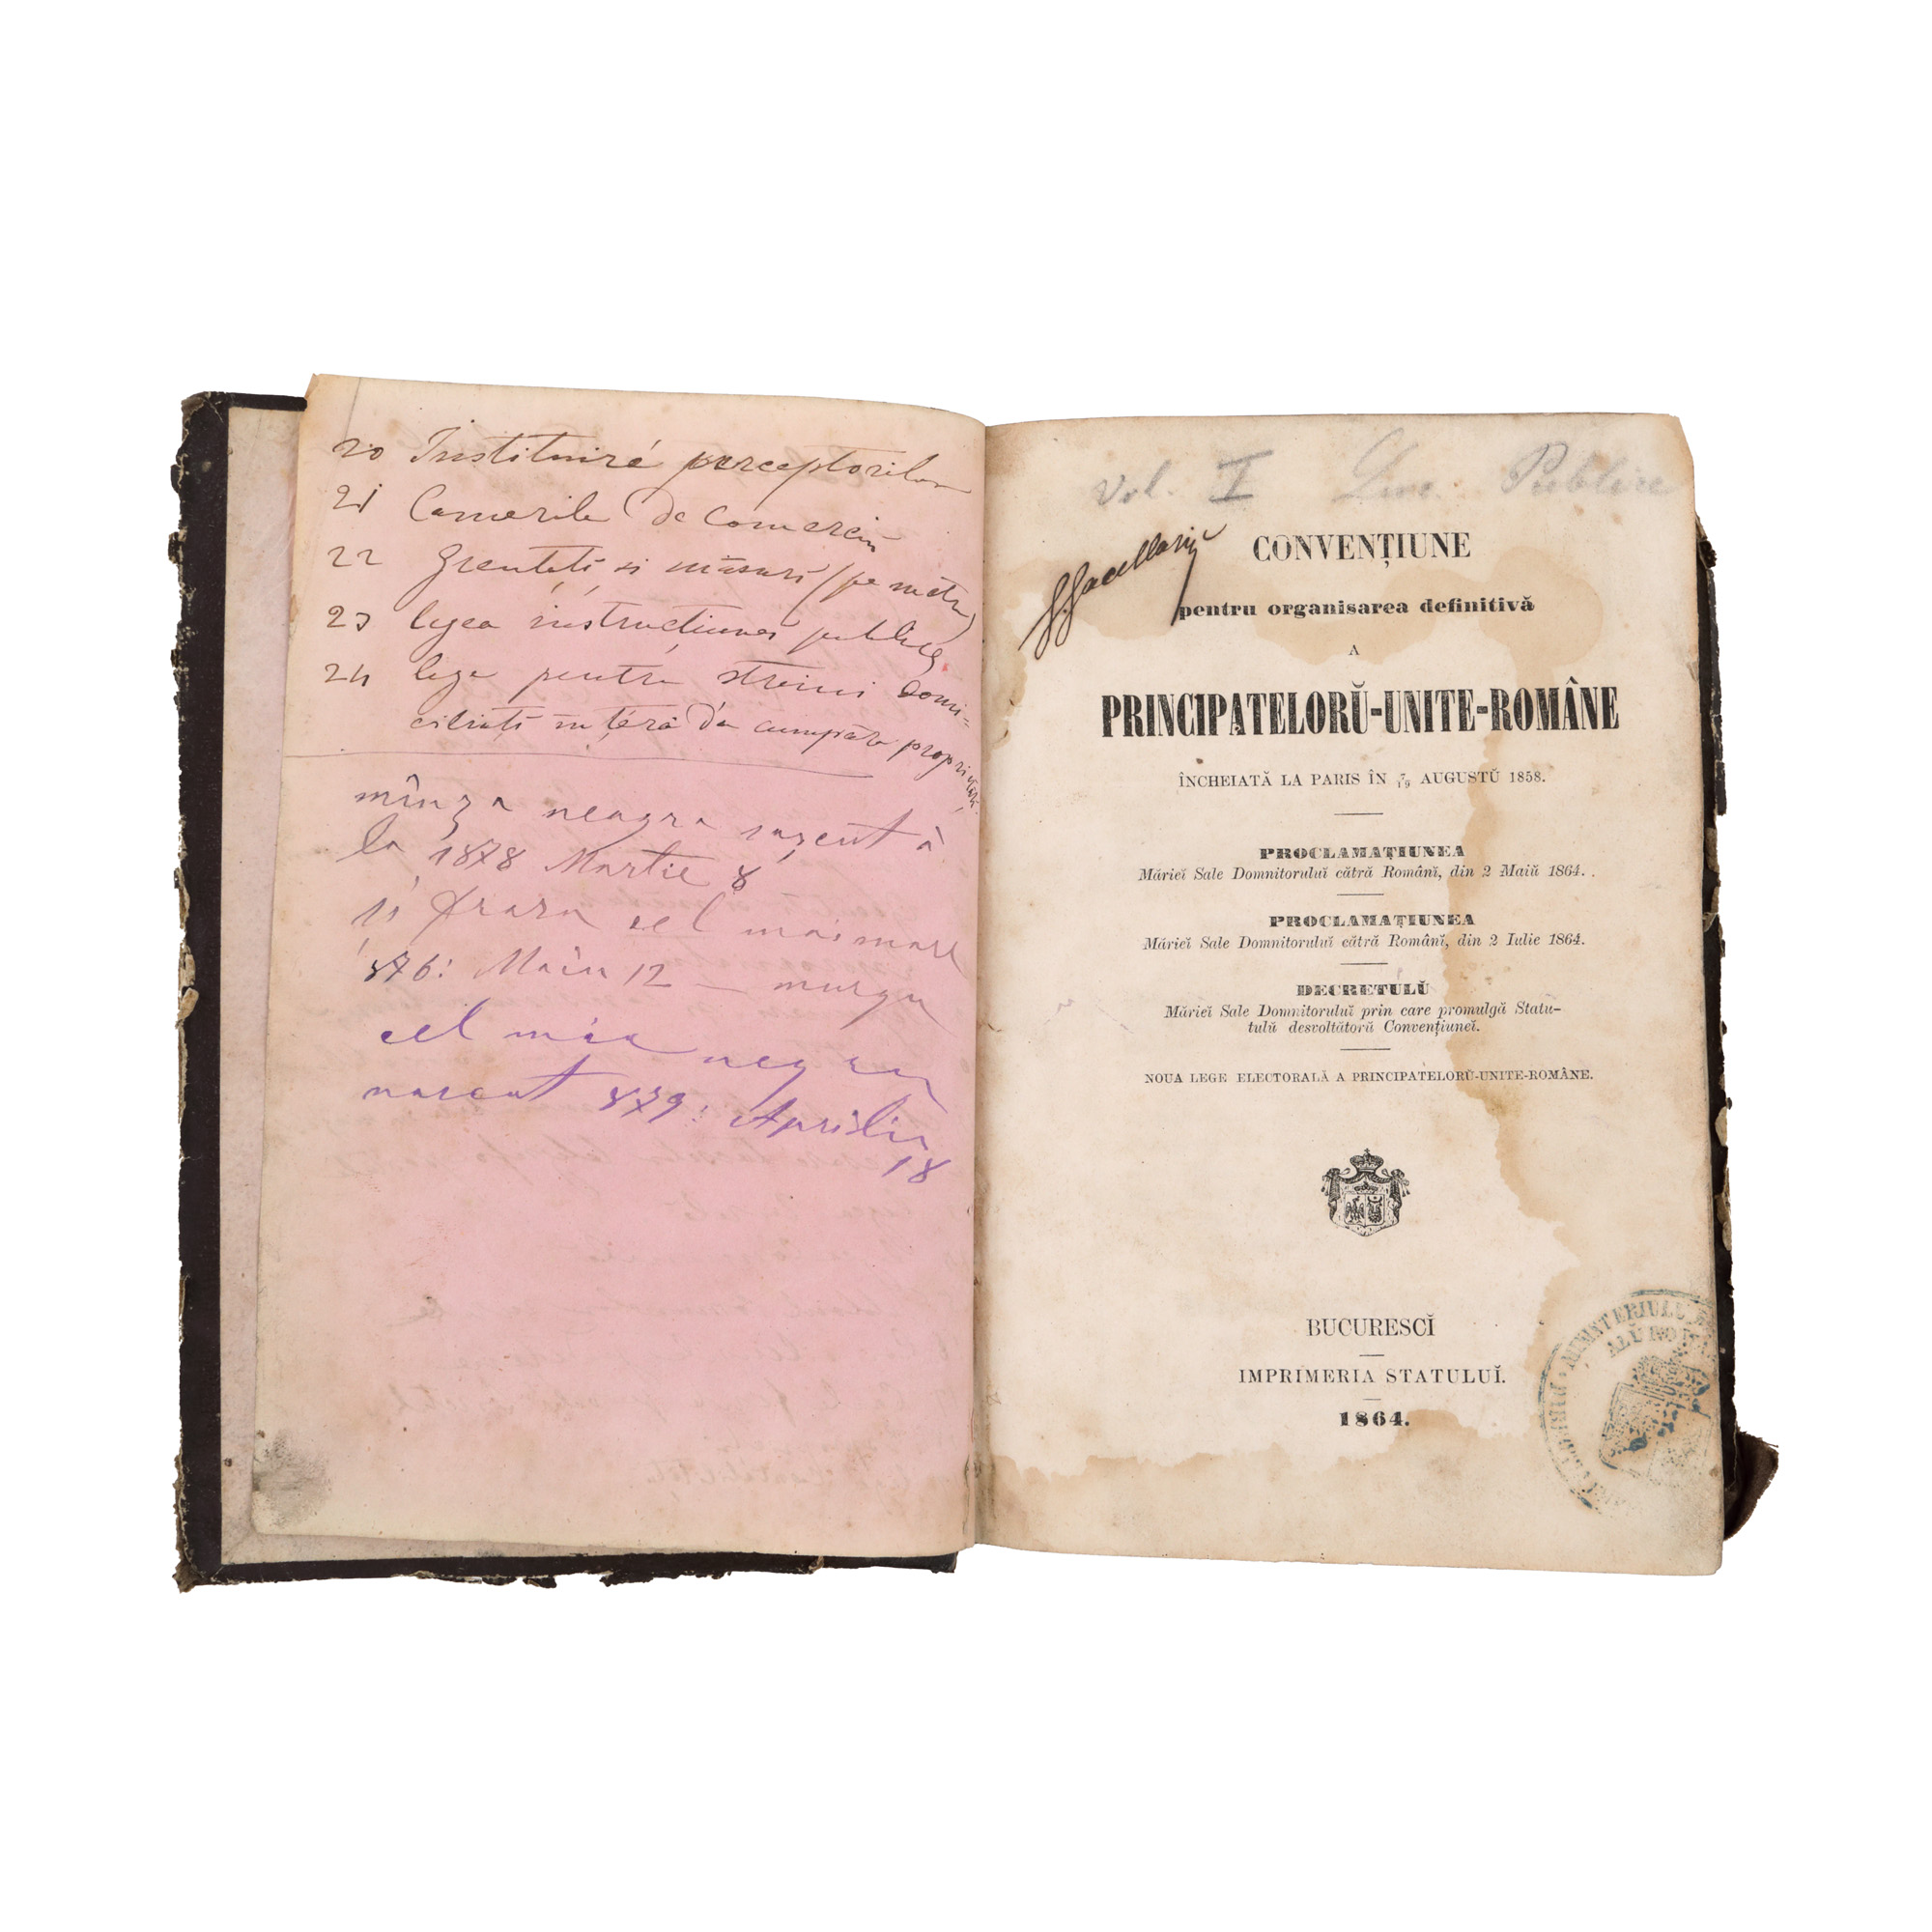 20 Instituire perceptorilor
21 Camerile de comerciu
22 Greutăti si măsuri (pe metru)
23 legea instrucțiunei publice
24 lege pentru streini domi=
ciliați în țéră d'a cumpăra proprietăți
mînza neagra
la 1878 Martie 8
si cel mai mare
876: Maiu 12 — murgu
cel mic negru
nascut 879: Apriliu
18
Vol. I Luc. Publice
CONVENȚIUNE
pentru organisarea definitivă
A
PRINCIPATELORŬ-UNITE-ROMÂNE
ÎNCHEIATĂ LA PARIS ÎN 7/19 AUGUSTŬ 1858.
PROCLAMAȚIUNEA
Măriei Sale Domnitoruluĭ cătră Românĭ, din 2 Maiŭ 1864.
PROCLAMAȚIUNEA
Măriei Sale Domnitoruluĭ cătră Românĭ, din 2 Iulie 1864.
DECRETULŬ
Măriei Sale Domnitoruluĭ prin care promulgă Statu-
tulŭ desvoltătorŭ Convențiuneĭ.
NOUA LEGE ELECTORALĂ A PRINCIPATELORŬ-UNITE-ROMÂNE.
BUCURESCĬ
IMPRIMERIA STATULUĬ.
1864.
MINISTERIULU